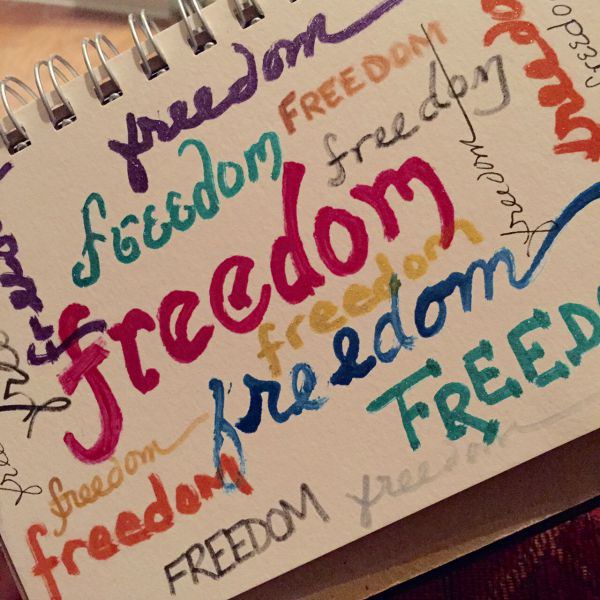 freedom
FREEDOM
freedom
freedom
freedom
freedom
freedom
freedom
freedom
freedom
freedom
FREEDO
freedom
freedom
FREEDOM
freedom